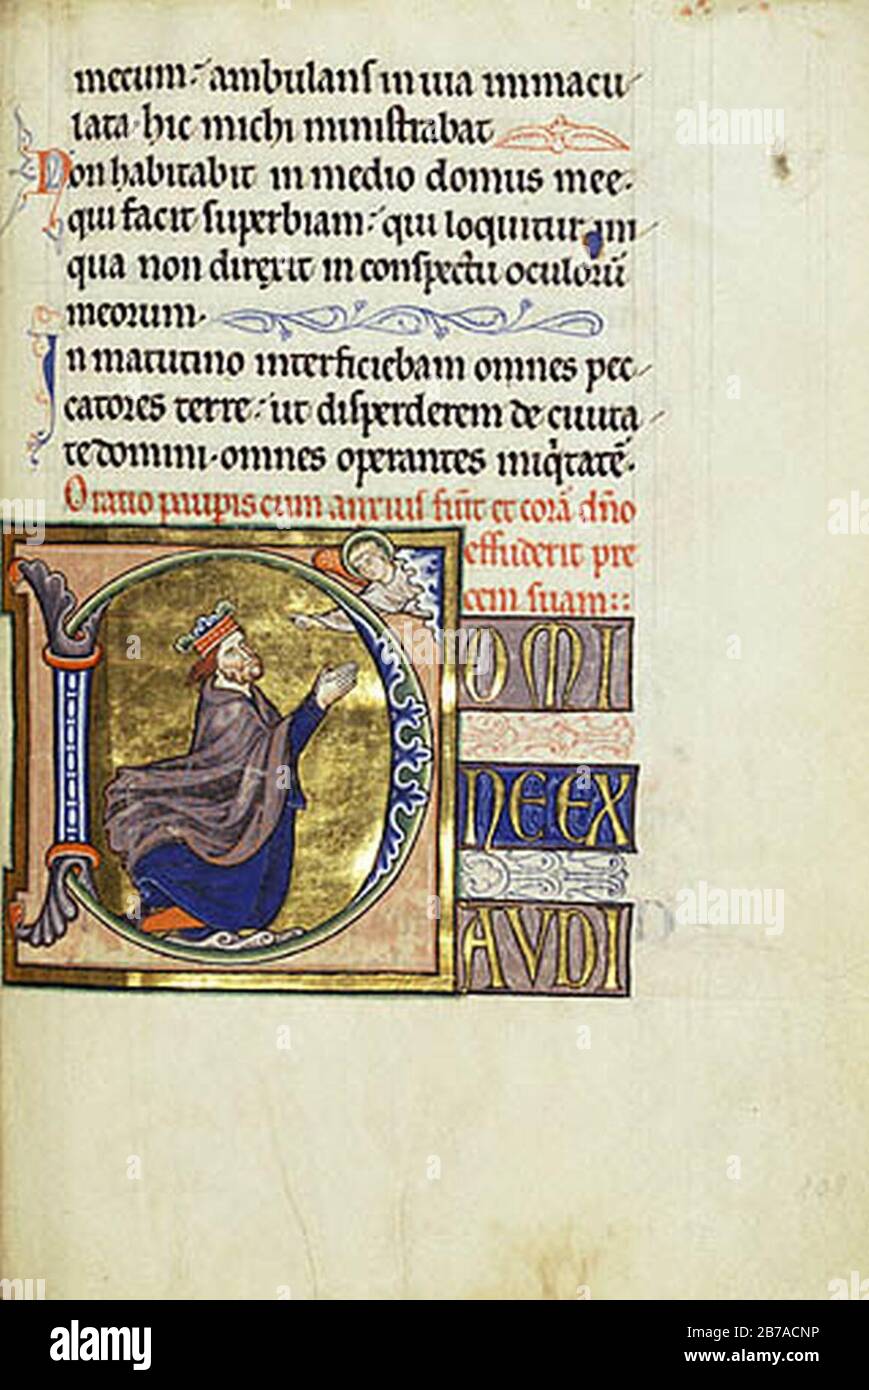 mecum· ambulans in uia immacu
lata· hic michi ministrabat
Non habitabit in medio domus mee·
qui facit superbiam· qui loquitur ini
qua non direxit in conspectu oculorū
meorum·
In matutino interficiebam omnes pec
catores terre· ut disperderem de ciuita
te domini· omnes operantes iniq̇tatē·
Oratio paupis cum anxius fūıt et corā dn̄o
effuderit pre
cem suam::
DOMI
NE EX
AVDI
alamy
Image ID: 2B7ACNP
www.alamy.com